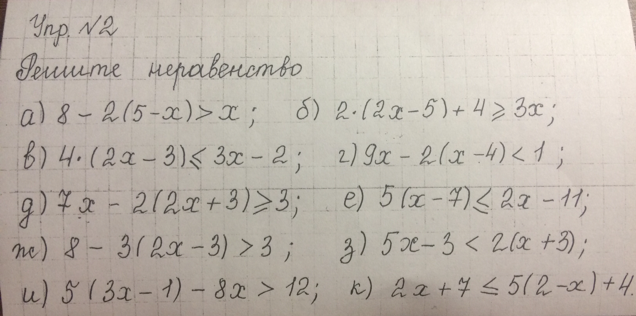 Упр. №2
Решите неравенство
а) 8 - 2(5-x) > x; б) 2·(2x-5)+4 ⩾ 3x;
в) 4·(2x-3) ⩽ 3x-2; г) 9x-2(x-4) < 1;
д) 7x - 2(2x+3) ⩾ 3; е) 5(x-7) ⩽ 2x-11;
ж) 8 - 3(2x-3) > 3; з) 5x-3 < 2(x+3);
и) 5(3x-1) - 8x > 12; к) 2x+7 ⩽ 5(2-x)+4.